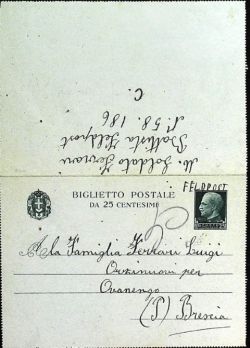 M. Soldato Ferrari
Battista Feldpost
N. 58.186
C.
FELDPOST
BIGLIETTO POSTALE
DA 25 CENTESIMI
A la Famiglia Ferrari Luigi
Orzinuovi per
Ovanengo
(P) Brescia